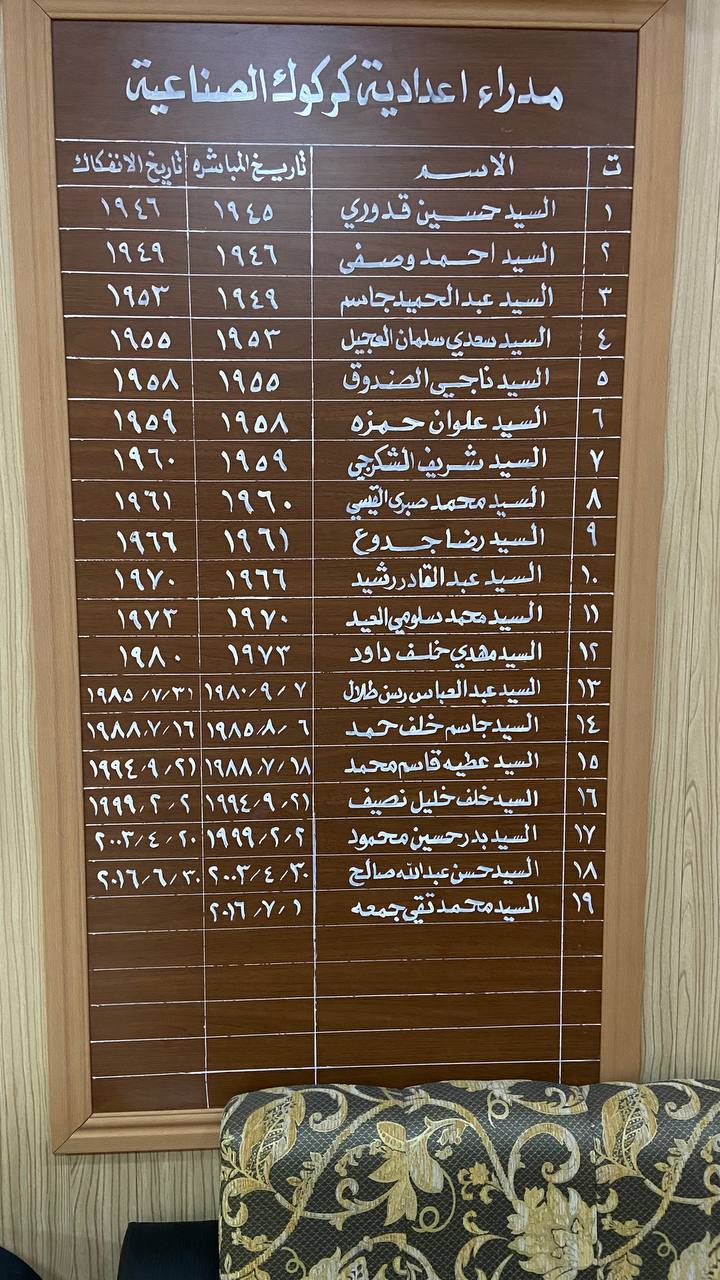 مدراء اعدادية كركوك الصناعية
ت الاسم تاريخ المباشره تاريخ الانفكاك
١ السيد حسين قدوري ١٩٤٥ ١٩٤٦
٢ السيد احمد وصفى ١٩٤٦ ١٩٤٩
٣ السيد عبد الحميد جاسم ١٩٤٩ ١٩٥٣
٤ السيد سعدي سلمان العجيل ١٩٥٣ ١٩٥٥
٥ السيد ناجي الصندوق ١٩٥٥ ١٩٥٨
٦ السيد علوان حمزه ١٩٥٨ ١٩٥٩
٧ السيد شريف الشكرجي ١٩٥٩ ١٩٦٠
٨ السيد محمد صبرى القيسي ١٩٦٠ ١٩٦١
٩ السيد رضا جدوع ١٩٦١ ١٩٦٦
١٠ السيد عبد القادر رشيد ١٩٦٦ ١٩٧٠
١١ السيد محمد سلومي العيد ١٩٧٠ ١٩٧٣
١٢ السيد مهدي خلف داود ١٩٧٣ ١٩٨٠
١٣ السيد عبد العباس رسن طلال ١٩٨٠/٩/٧ ١٩٨٥/٧/٣١
١٤ السيد جاسم خلف حمد ١٩٨٥/٨/٦ ١٩٨٨/٧/١٦
١٥ السيد عطيه قاسم محمد ١٩٨٨/٧/١٨ ١٩٩٤/٩/٢١
١٦ السيد خلف خليل نصيف ١٩٩٤/٩/٢١ ١٩٩٩/٢/٢
١٧ السيد بدر حسين محمود ١٩٩٩/٢/٢ ٢٠٠٣/٤/٢٠
١٨ السيد حسن عبدالله صالح ٢٠٠٣/٤/٣٠ ٢٠١٦/٦/٣٠
١٩ السيد محمد تقي جمعه ٢٠١٦/٧/١